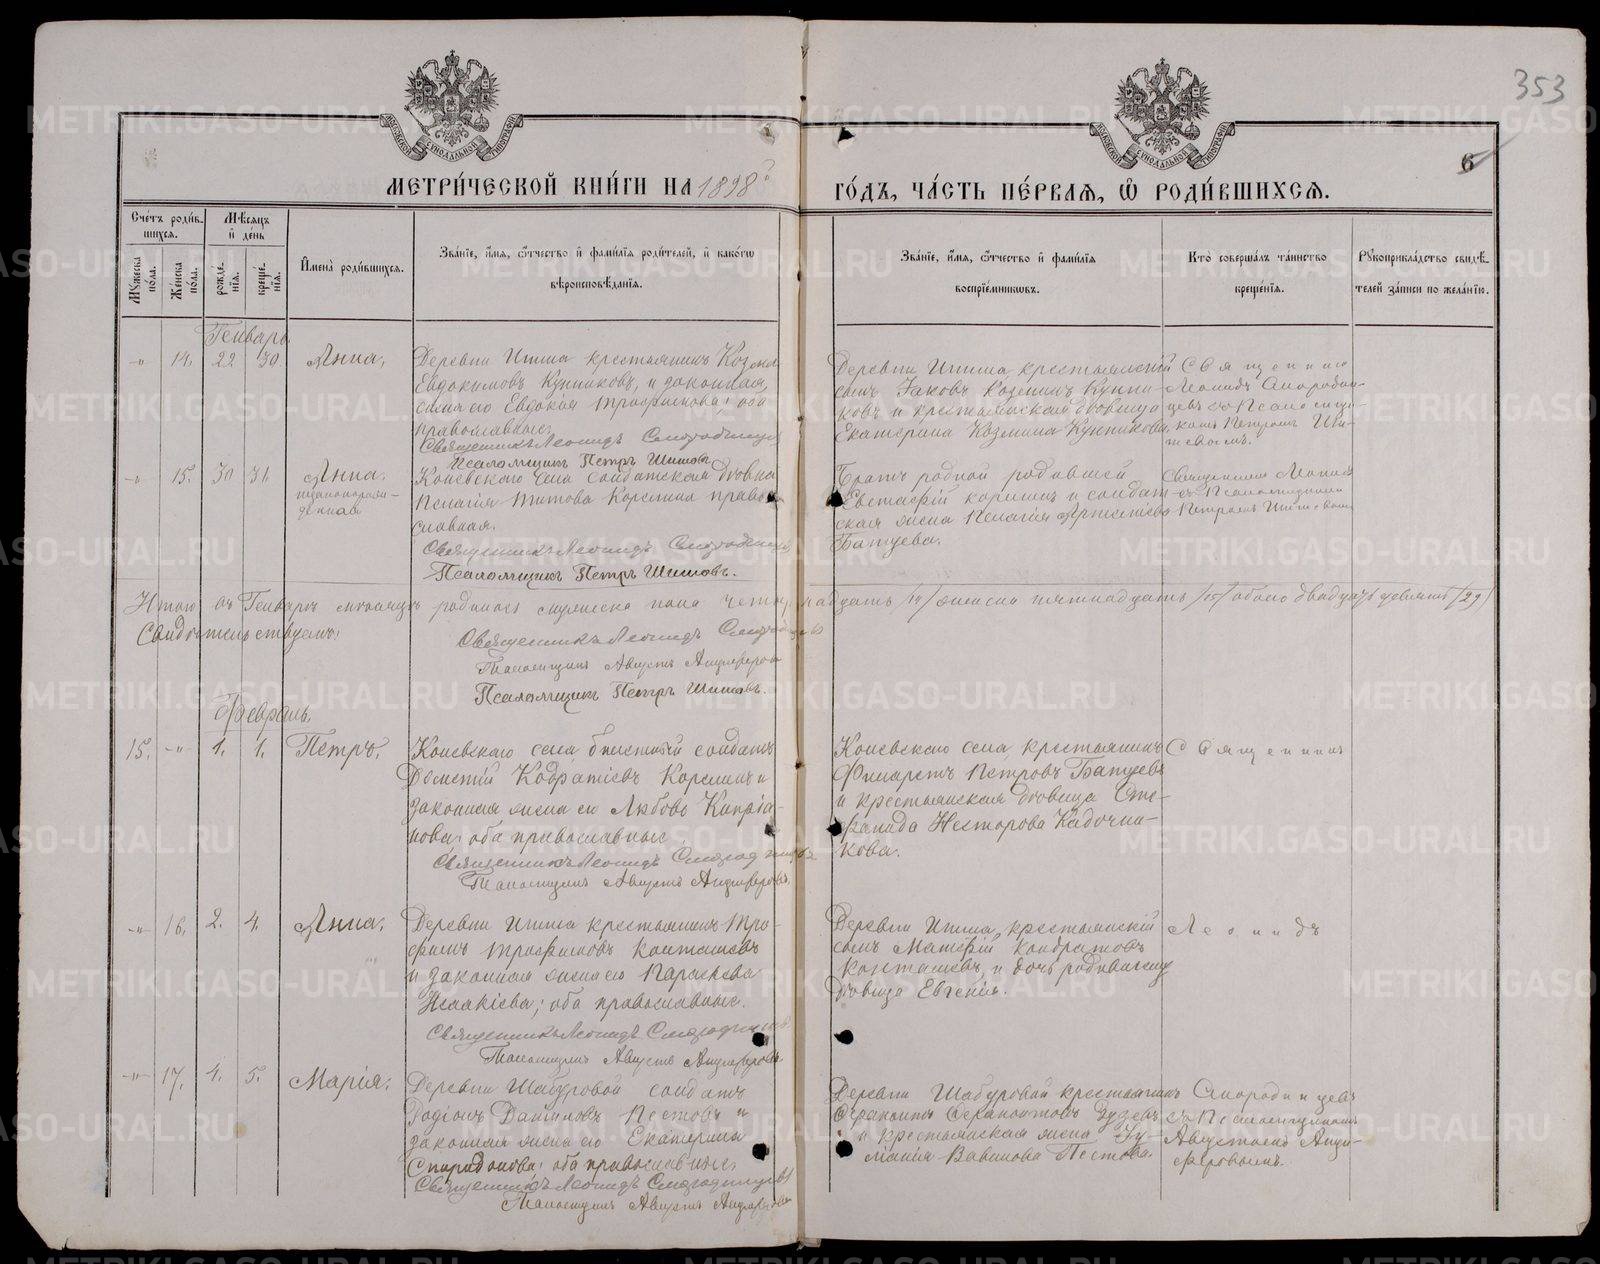 353
6
МЕТРИ́ЧЕСКОЙ КНИ́ГИ НА 1898й ГО́ДЪ, ЧА́СТЬ ПЕ́РВАЯ, Ѡ РОДИ́ВШИХСЯ.
Сче́тъ роди́в-
шихся.
Мѣ́сяцъ
и де́нь
Му́жеска по́ла.
Же́нска по́ла.
рожде́нїя.
креще́нїя.
Имена̀ роди́вшихся.
Зва́нїе, и́мя, ѻ҆́тчество и фами́лїя роди́телей, и како́гѡ
вѣроисповѣ́данїя.
Зва́нїе, и́мя, ѻ҆́тчество и фами́лїя
воспрїе́мникѡвъ.
Кто̀ соверша́лъ та́инство
креще́нїя.
Рукоприкла́дство свидѣ́-
телей за́писи по жела́нїю.
Генварь
-"- 14. 22 30 Анна,
Деревни Итиша крестьянинъ Козма
Евдокимовъ Кунниковъ, и законная
жена его Евдокія Трофимова; оба
православные.
Священникъ Леонидъ Смородинцевъ
Псаломщикъ Петръ Шитовъ
Деревни Итиша крестьянскій
сынъ Іаковъ Козминъ Кунни-
ковъ и крестьянская дѣвица
Екатерина Козмина Кунникова.
Священникъ
Леонидъ Смородин-
цевъ съ Псаломщи-
комъ Петромъ Ши-
товымъ.
-"- 15. 30 31. Анна
незаконорож-
денная
Коневскаго села солдатская дѣвка
Пелагія Титова Корелина право-
славная.
Священникъ Леонидъ Смородинцевъ
Псаломщикъ Петръ Шитовъ.
Братъ родной родившей
Евстафій Корелинъ и солдат-
ская жена Пелагія Артемьева
Батуева.
Священникъ Леонидъ
съ Псаломщикомъ
Петромъ Шитовымъ
Итого въ Генварѣ мѣсяцѣ родилось мужеска пола четырнадцать /14/ женска пятнадцать /15/ обоего двадцать девять /29/
Свидѣтельствуемъ:
Священникъ Леонидъ Смородинцевъ
Псаломщикъ Августъ Анциферовъ
Псаломщикъ Петръ Шитовъ.
Февраль.
15. -"- 1. 1. Петръ.
Коневскаго села билетный солдатъ
Дометій Кодратіевъ Корелинъ и
законная жена его Любовь Кипріа-
нова; оба православные
Священникъ Леонидъ Смородинцевъ
Псаломщикъ Августъ Анциферовъ.
Коневскаго села крестьянинъ
Филаретъ Петровъ Батуевъ
и крестьянская дѣвица Сте-
фанида Несторова Кадочни-
кова.
Священникъ
-"- 16. 2. 4. Анна.
Деревни Итиша крестьянинъ Тро-
фимъ Трофимовъ Конташевъ
и законная жена его Параскева
Исаакіева; оба православные.
Священникъ Леонидъ Смородинцевъ
Псаломщикъ Августъ Анциферовъ.
Деревни Итиша, крестьянскій
сынъ Матѳій Кондратовъ
Конташевъ, и дочь родившихъ
дѣвица Евгенія.
Леонидъ
-"- 17. 4. 5. Марія.
Деревни Шабуровой солдатъ
Родіонъ Даніиловъ Пестовъ и
законная жена его Екатерина
Спиридонова; оба православные.
Священникъ Леонидъ Смородинцевъ
Псаломщикъ Августъ Анциферовъ
Деревни Шабуровой крестьянинъ
Ферапонтъ Ферапонтовъ
и крестьянская жена Іу-
ліанія Вавилова Пестова.
Смородинцевъ
съ Псаломщикомъ
Августомъ Анци-
феровымъ.
METRIKI.GASO-URAL.RU